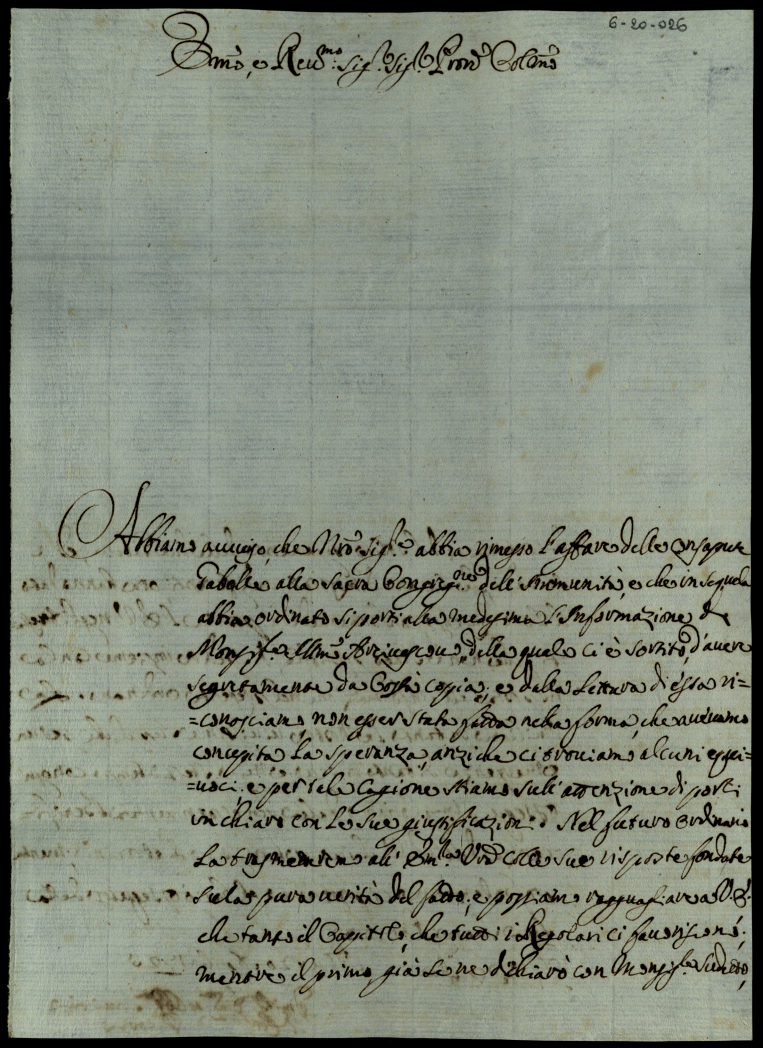 6-20-026
Emo, e Reu.mo Sig.r Sig.r Pron Colmo
Abbiamo auuiso, che Nro Sig.re abbia rimesso l'affare delle consapute
Gabelle alla Sacra Congreg.ne dell'Immunità, e che in seguela
abbia ordinato si porti alla medesima l'Informazione di
Monsig.r Illmo Arciuescouo, della quale ci è sortito d'auere
segretamente da Costà copia, e dalla Lettura di essa ri=
=conosciamo non esser stata fatta nella forma, che aueuamo
concepita la speranza, anzi che ci trouiamo alcuni equi=
=uoci. e per tale Cagione stiamo sull'attenzione di porli
in chiaro con le sue giustificazioni. Nel futuro ordinario
la trasmetteremo all' Em Vra colle sue risposte fondate
sula pura uerità del fatto, e possiamo ragguagliare a V. E.
che tanto il Capitolo, che tutti i Regolari ci fauoriscono,
mentre il primo già se ne dichiarò con Monsig.r Sudetto,